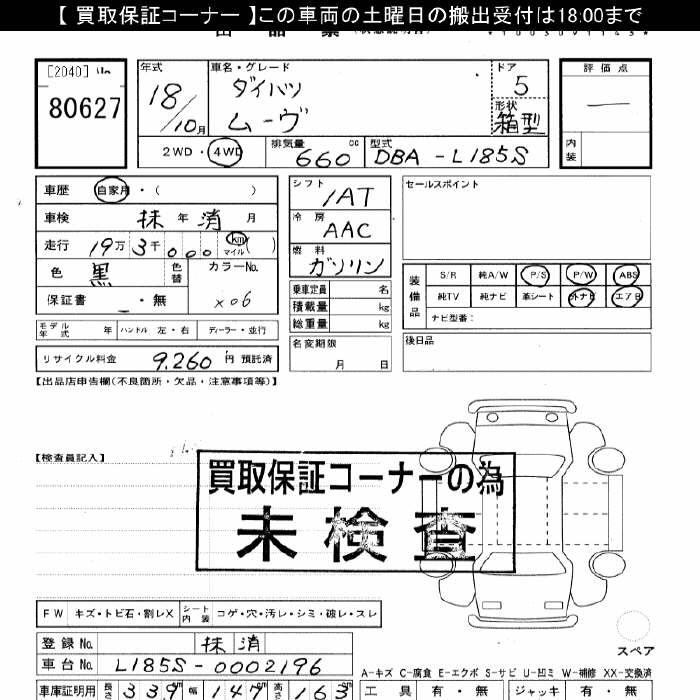 【 買取保証コーナー 】この車両の土曜日の搬出受付は18:00まで
[2040]
80627
年式 車名・グレード ドア 評価点
18/10月 ダイハツ ムーヴ 5
形状 箱型
内装
2WD・4WD 排気量 660 cc 型式 DBA-L185S
車歴 自家用・( )
車検 抹 年 消 月
走行 19万3千000 km マイル ( )
色 黒 色替 カラーNo. X06
保証書 ・ 無
シフト IAT
冷房 AAC
燃料 ガソリン
乗車定員 名
積載量 kg
総重量 kg
名変期限 月 日
セールスポイント
装備品 S/R 純A/W P/S P/W ABS
純TV 純ナビ 革シート 外ナビ エアB
ナビ型番:
後日品
モデル年式 年 ハンドル 左・右 ディーラー・並行
リサイクル料金 9,260 円 預託済
【出品店申告欄(不良箇所・欠品・注意事項等)】
【検査員記入】
買取保証コーナーの為
未検査
FW キズ・トビ石・割レX シート内装 コゲ・穴・汚レ・シミ・破レ・スレ
スペア
登録No. 抹消
車台No. L185S-0002196
A-キズ C-腐食 E-エクボ S-サビ U-凹ミ W-補修 XX-交換済
車庫証明用 長さ 339 幅 147 高さ 163
工具 有・無 ジャッキ 有・無